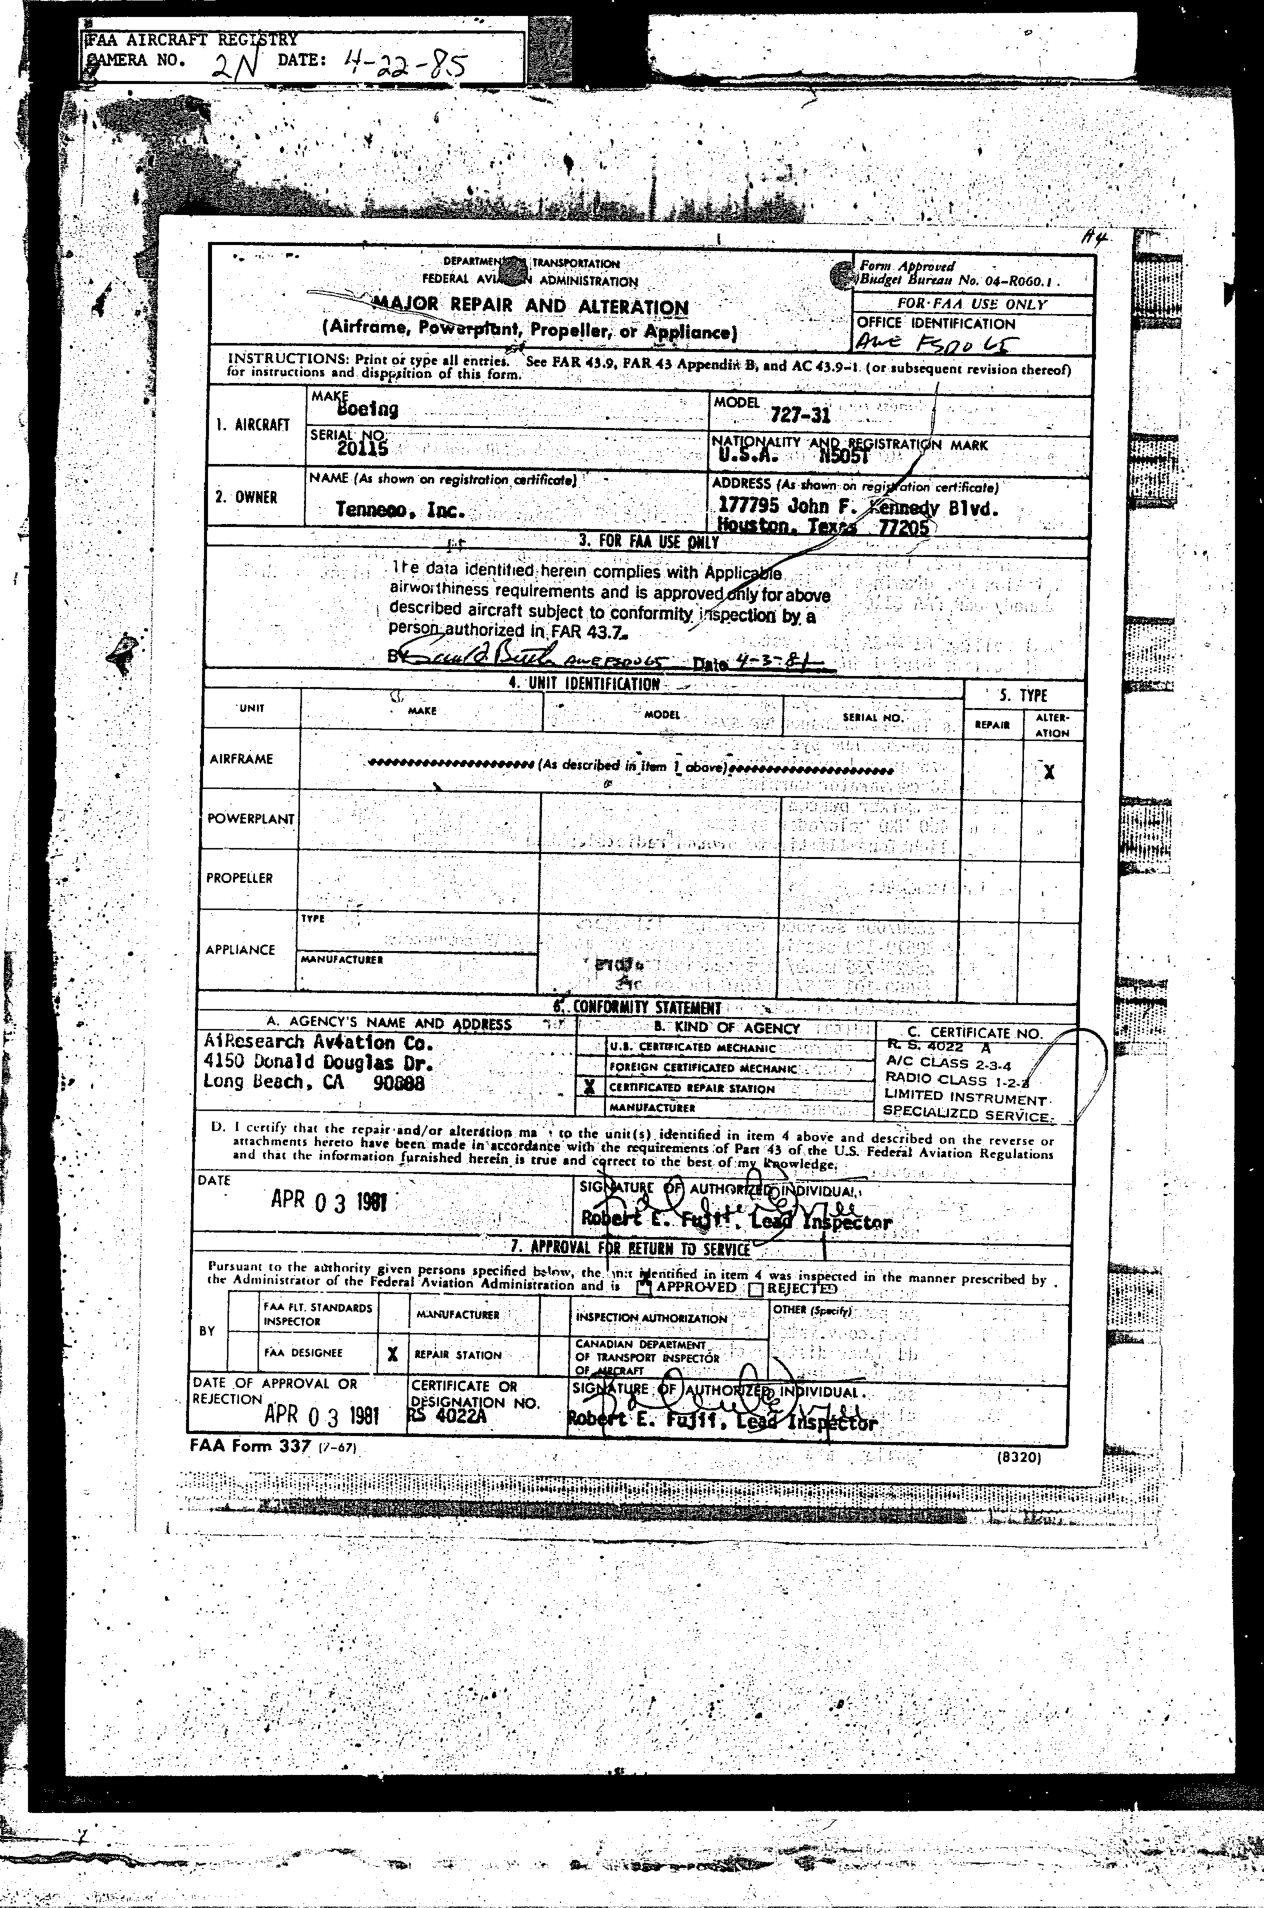 FAA AIRCRAFT REGISTRY
CAMERA NO. 2N DATE: 4-22-85
A4
DEPARTMENT TRANSPORTATION
FEDERAL AVI N ADMINISTRATION
MAJOR REPAIR AND ALTERATION
(Airframe, Powerplant, Propeller, or Appliance)
Form Approved
Budget Bureau No. 04-R060.1.
FOR FAA USE ONLY
OFFICE IDENTIFICATION
AWE FSDO 65
INSTRUCTIONS: Print or type all entries. See FAR 43.9, FAR 43 Appendix B, and AC 43.9-1 (or subsequent revision thereof)
for instructions and disposition of this form.
1. AIRCRAFT
MAKE
Boeing
MODEL
727-31
SERIAL NO.
20115
NATIONALITY AND REGISTRATION MARK
U.S.A. N505T
2. OWNER
NAME (As shown on registration certificate)
Tenneco, Inc.
ADDRESS (As shown on registration certificate)
177795 John F. Kennedy Blvd.
Houston, Texas 77205
3. FOR FAA USE ONLY
The data identified herein complies with Applicable
airworthiness requirements and is approved only for above
described aircraft subject to conformity inspection by a
person authorized in FAR 43.7.
By AWE FSDO 65 Date 4-3-81
4. UNIT IDENTIFICATION
5. TYPE
UNIT
MAKE
MODEL
SERIAL NO.
REPAIR
ALTER-
ATION
AIRFRAME
(As described in item 1 above)
X
POWERPLANT
PROPELLER
APPLIANCE
TYPE
MANUFACTURER
6. CONFORMITY STATEMENT
A. AGENCY'S NAME AND ADDRESS
B. KIND OF AGENCY
C. CERTIFICATE NO.
AiResearch Aviation Co.
4150 Donald Douglas Dr.
Long Beach, CA 90808
U.S. CERTIFICATED MECHANIC
FOREIGN CERTIFICATED MECHANIC
X CERTIFICATED REPAIR STATION
MANUFACTURER
R. S. 4022 A
A/C CLASS 2-3-4
RADIO CLASS 1-2-3
LIMITED INSTRUMENT
SPECIALIZED SERVICE
D. I certify that the repair and/or alteration ma to the unit(s) identified in item 4 above and described on the reverse or
attachments hereto have been made in accordance with the requirements of Part 43 of the U.S. Federal Aviation Regulations
and that the information furnished herein is true and correct to the best of my knowledge.
DATE
APR 03 1981
SIGNATURE OF AUTHORIZED INDIVIDUAL
Robert E. Fujii, Lead Inspector
7. APPROVAL FOR RETURN TO SERVICE
Pursuant to the authority given persons specified below, the unit identified in item 4 was inspected in the manner prescribed by
the Administrator of the Federal Aviation Administration and is APPROVED REJECTED
BY
FAA FLT. STANDARDS
INSPECTOR
MANUFACTURER
INSPECTION AUTHORIZATION
OTHER (Specify)
FAA DESIGNEE
X REPAIR STATION
CANADIAN DEPARTMENT
OF TRANSPORT INSPECTOR
OF AIRCRAFT
DATE OF APPROVAL OR
REJECTION
APR 03 1981
CERTIFICATE OR
DESIGNATION NO.
RS 4022A
SIGNATURE OF AUTHORIZED INDIVIDUAL
Robert E. Fujii, Lead Inspector
FAA Form 337 (7-67)
(8320)